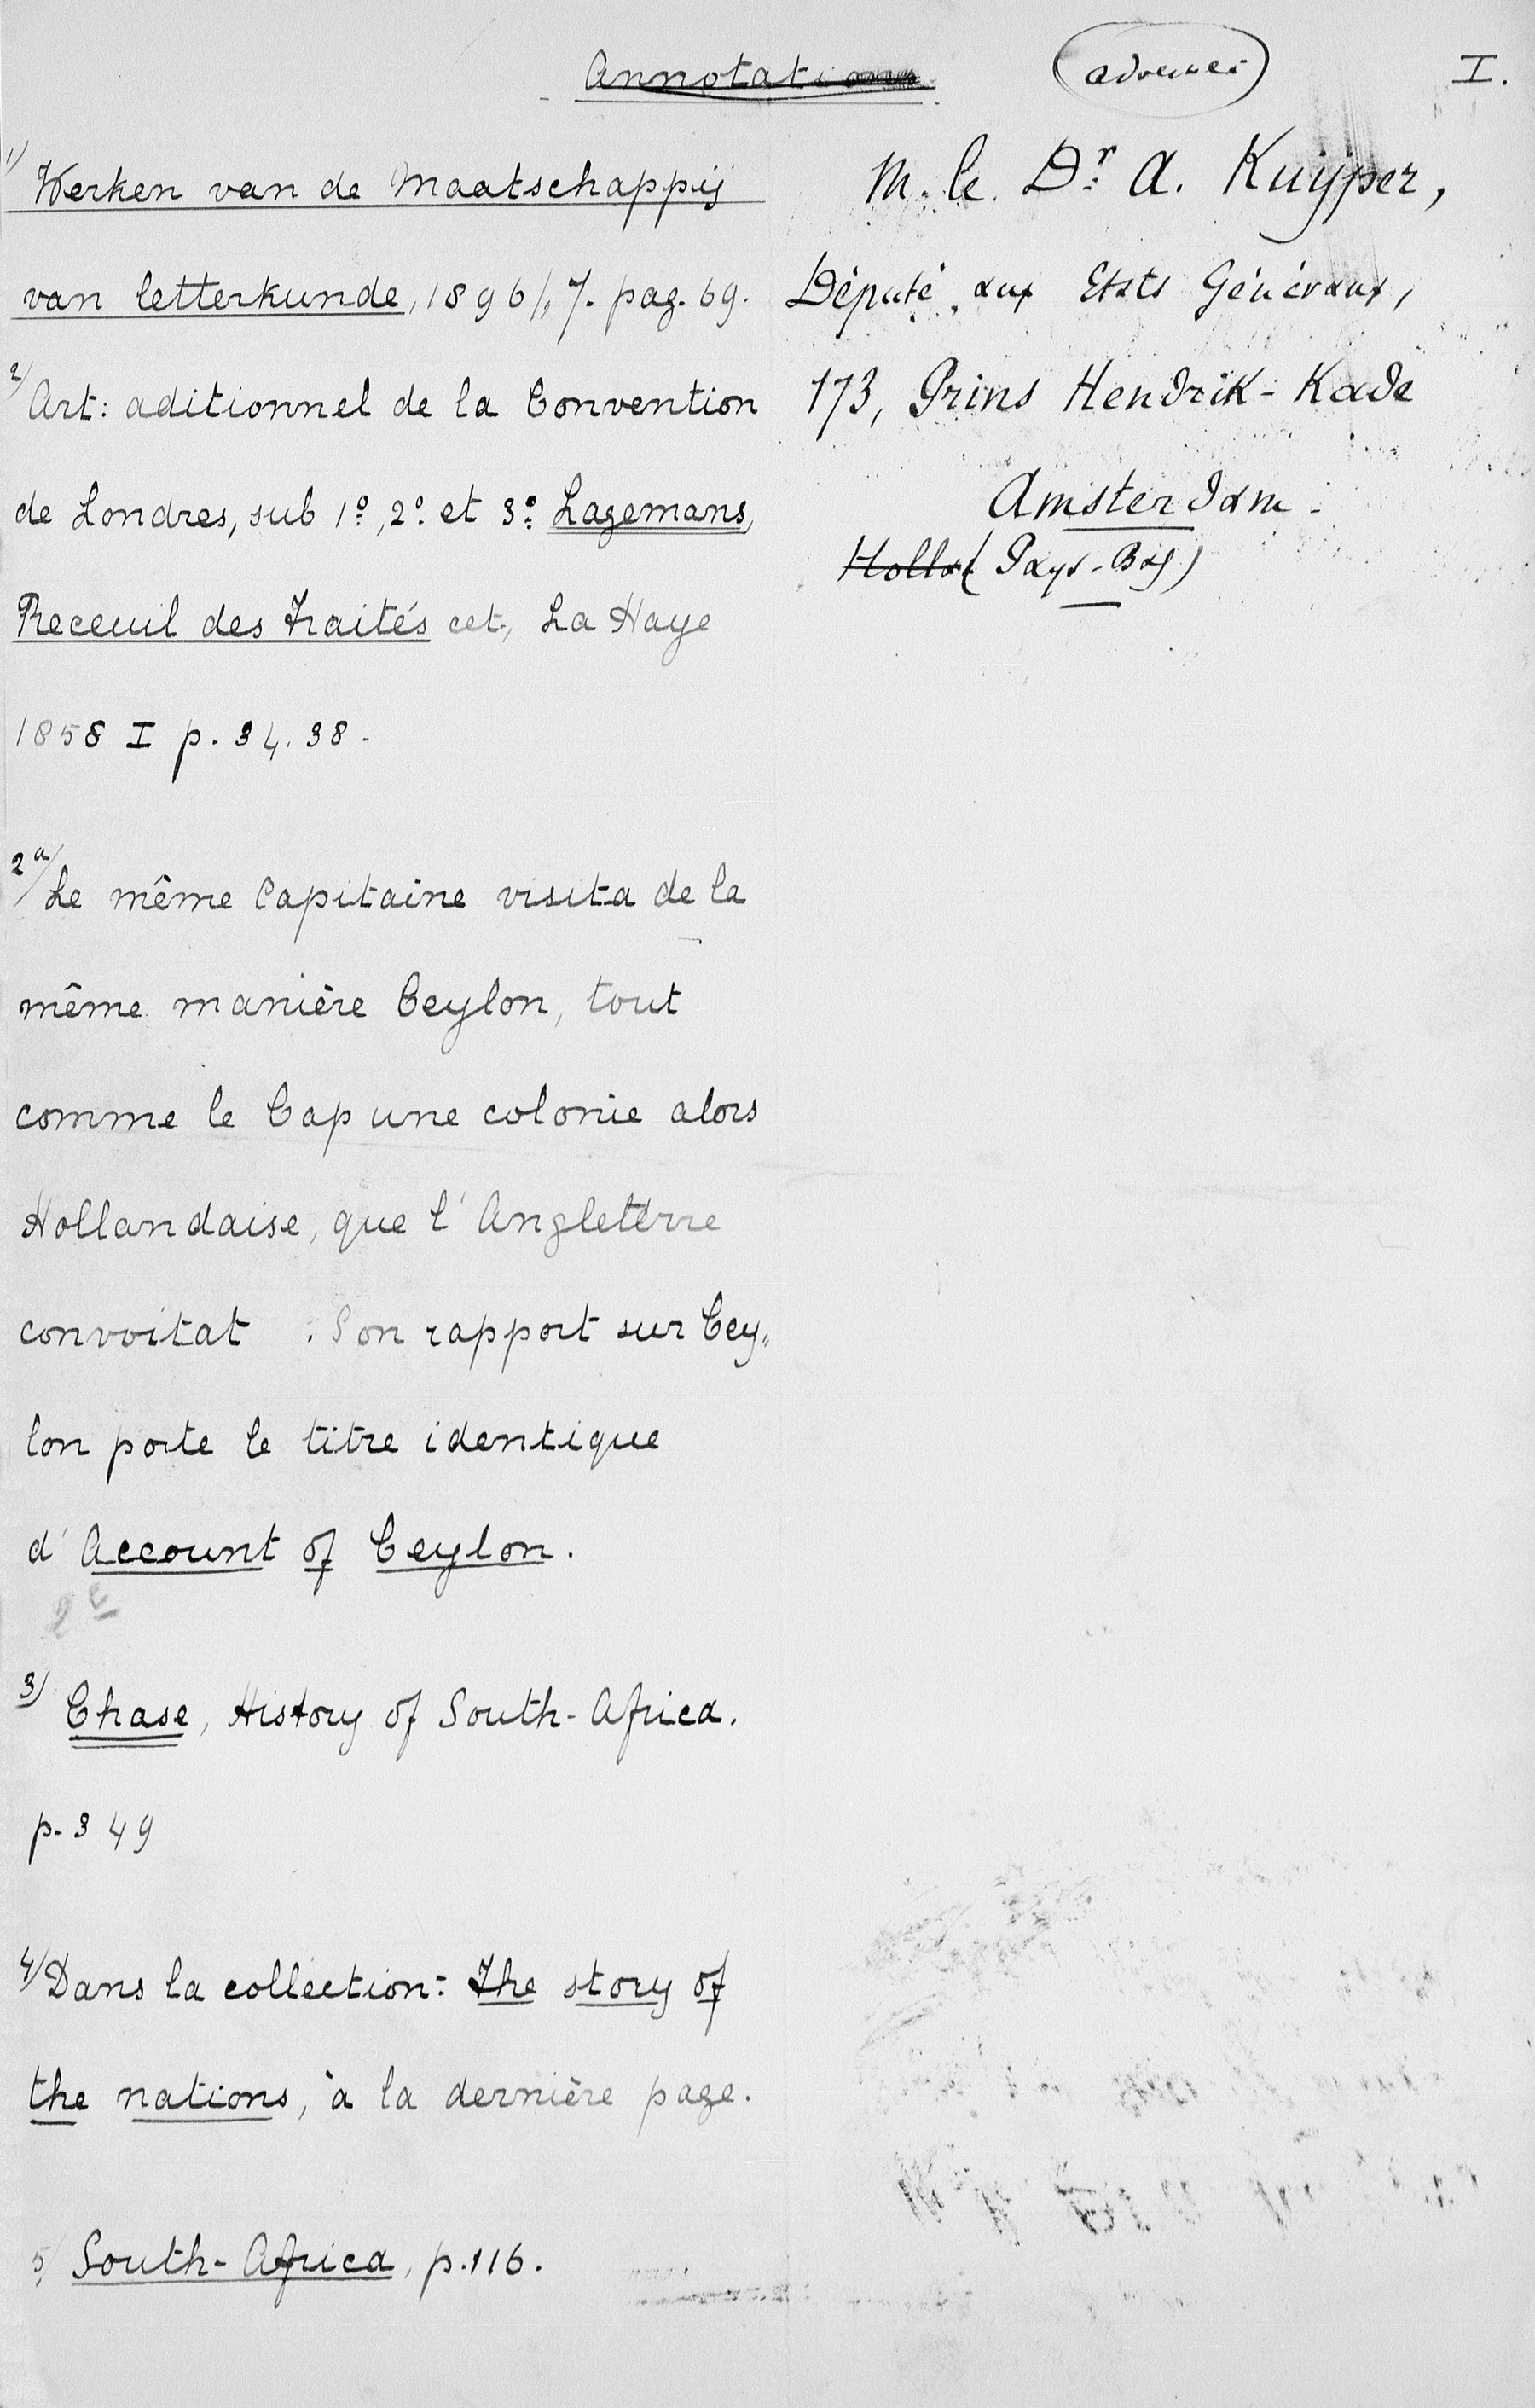 Annotations
I.
1) Werken van de Maatschappij
van letterkunde, 1896/,7. pag. 69.
2) Art: aditionnel de la Convention
de Londres, sub 1o, 2o. et 3o. Lagemans,
Receuil des Traités cet., La Haye
1858 I p. 34. 38.
2a) Le même Capitaine visita de la
même manière Ceylon, tout
comme le Cap une colonie alors
Hollandaise, que l'Angleterre
convoitat. Son rapport sur Cey„
lon porte le titre identique
d'Account of Ceylon.
3) Chase, History of South-Africa.
p. 349
4) Dans la collection: The story of
the nations, à la dernière page.
5) South-Africa, p. 116.
M. le Dr. A. Kuijper,
Député aux Etats Généraux,
173, Prins Hendrik-Kade
Amsterdam.
Holla (Pays-Bas)